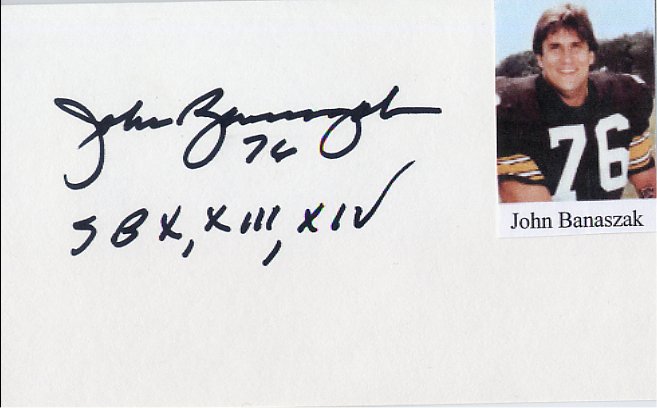 John Banaszak
76
SB X, XIII, XIV
76
John Banaszak